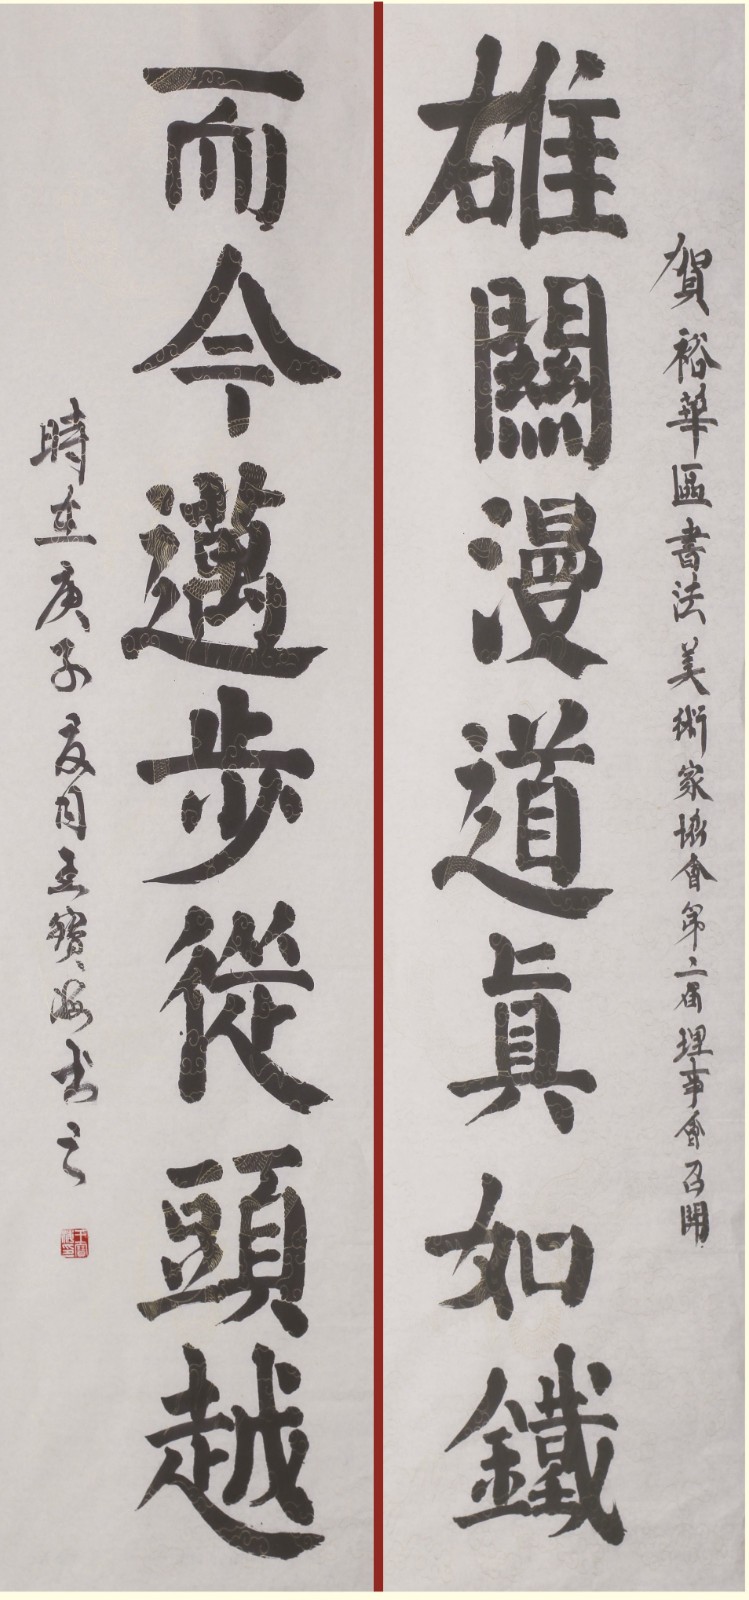 賀裕華區書法美術家協會第二屆理事會召開
雄關漫道真如鐵
而今邁步從頭越
時在庚子夏月王寶海書之